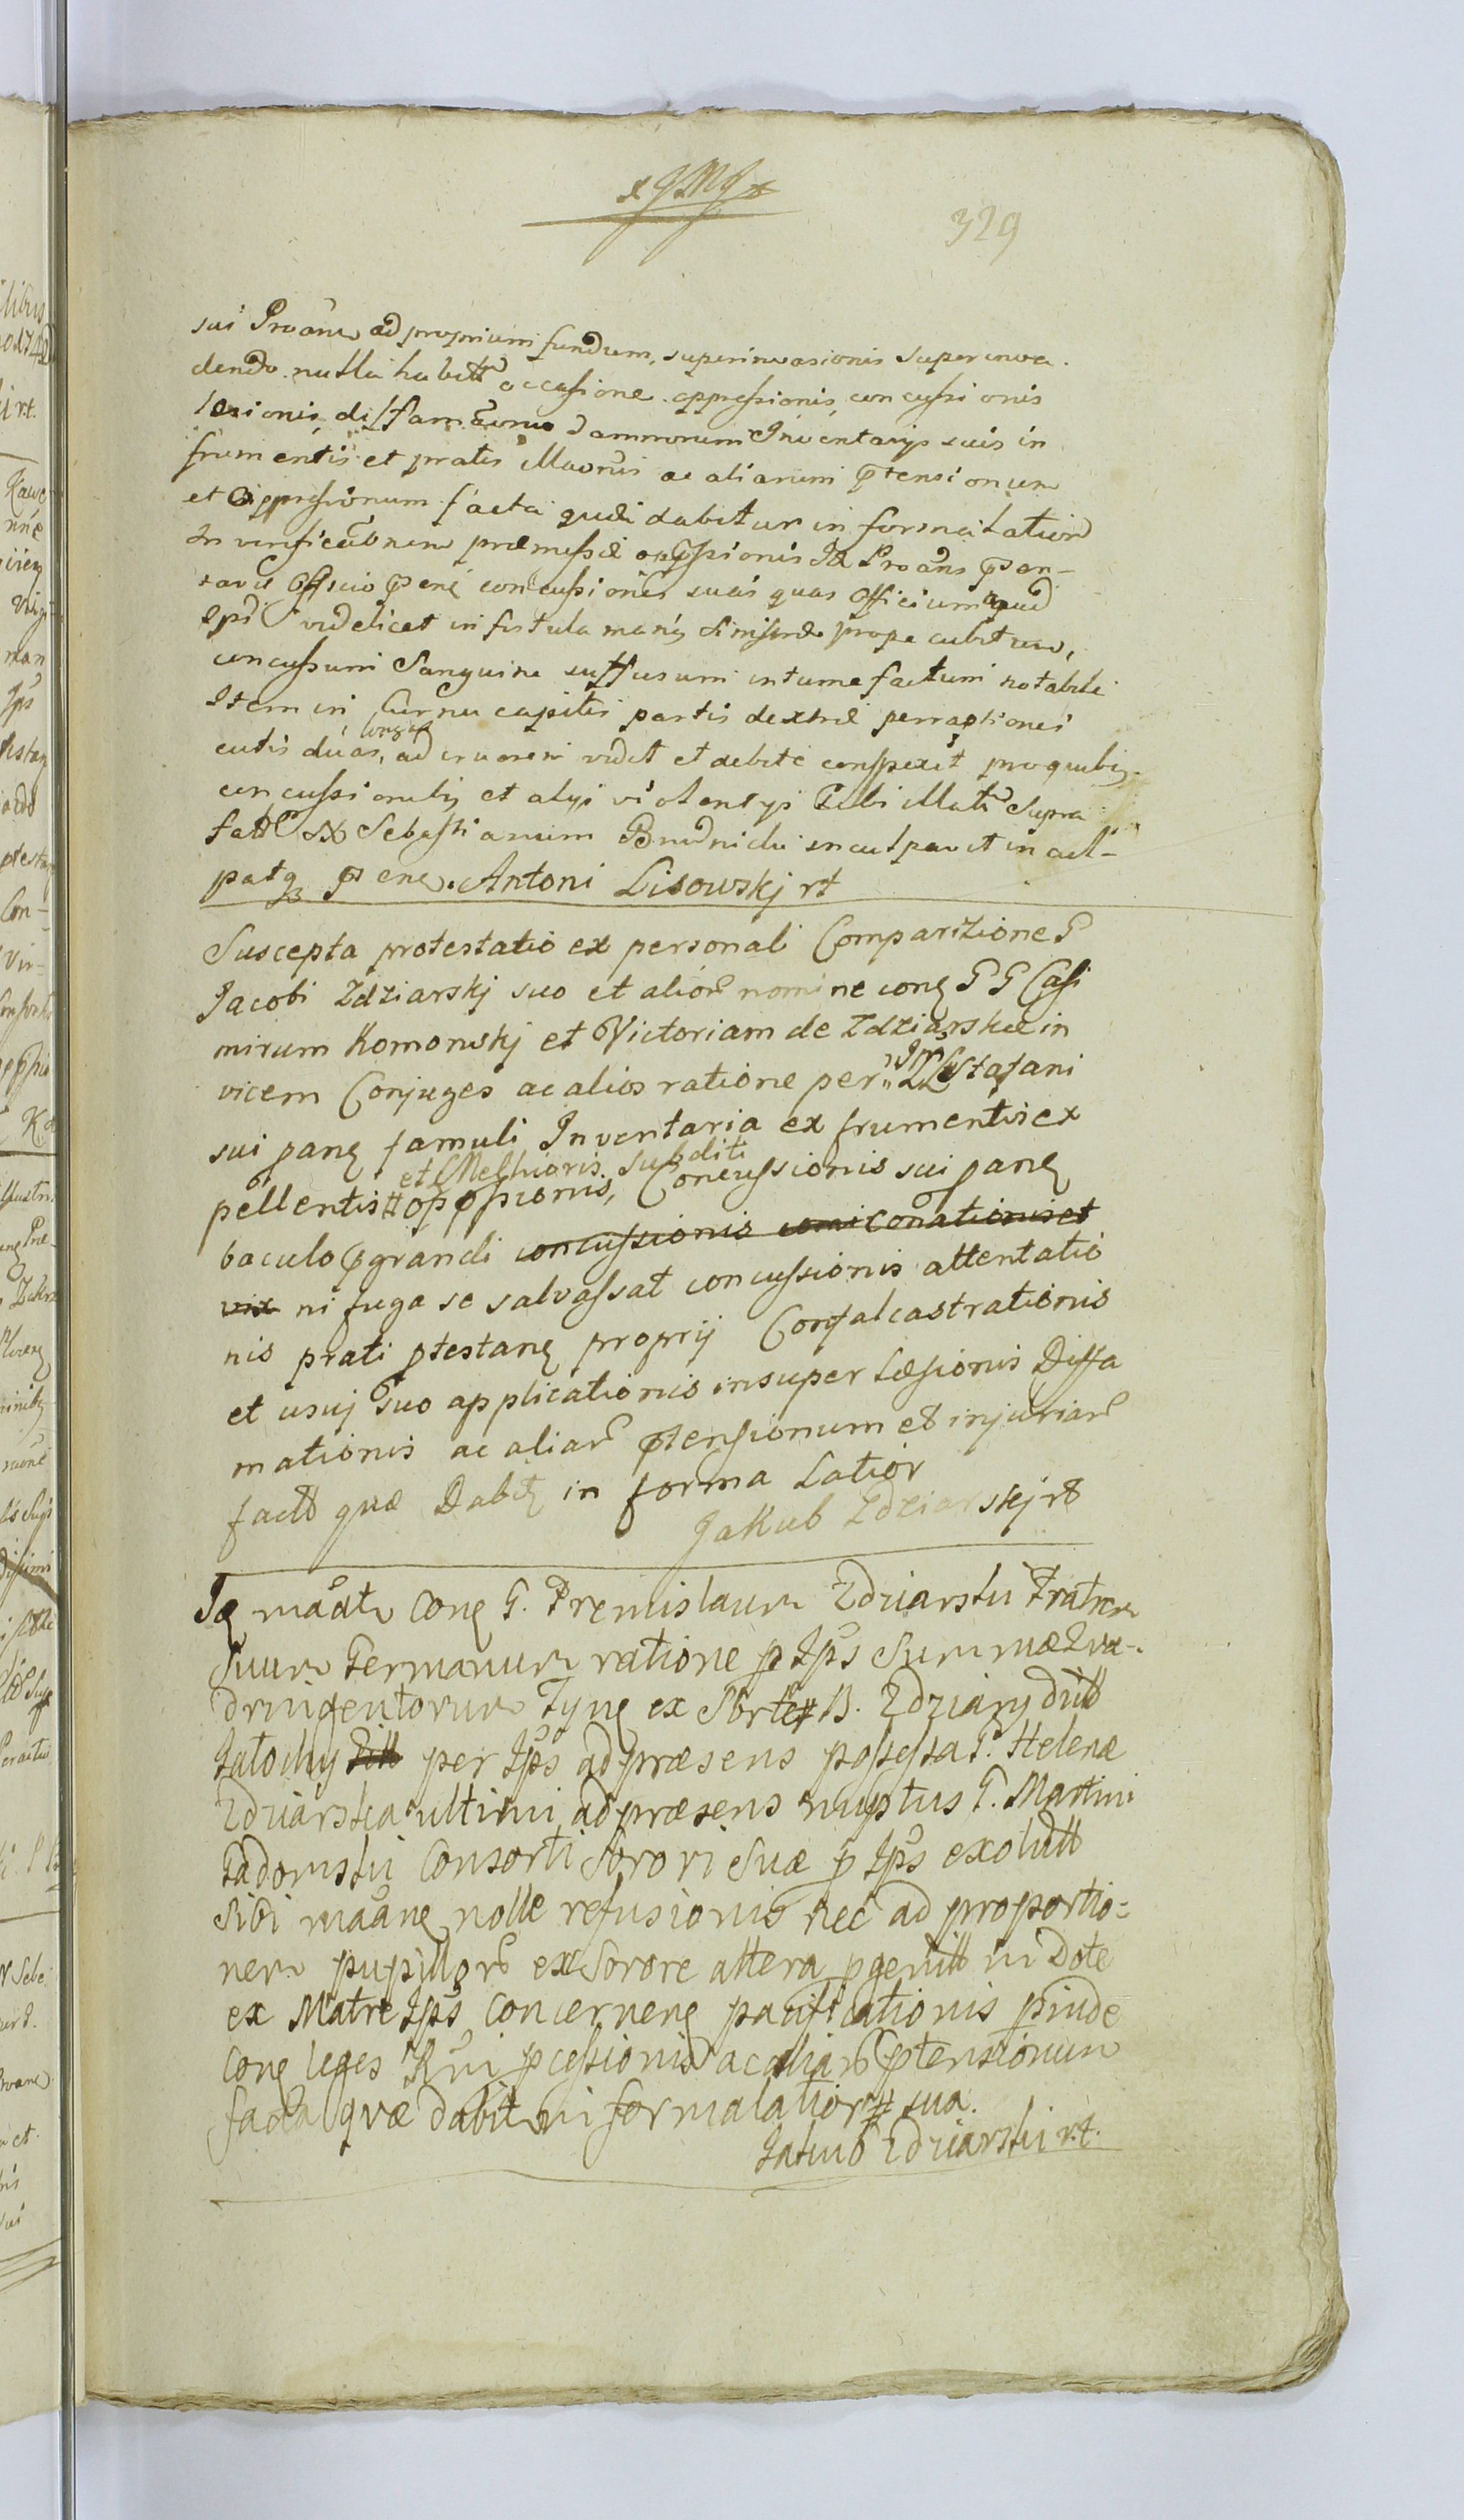 x JMJ x
329
sui Proane ad proprium fundum, superinvasionis superinva
dendo nulla habitt occasione oppressionis concussionis
læsionis, diffamaonis damnorum Inventarys suis in
frumentis et pratis illaorum ac aliarum ptensionum
et oppressionum facta quæ dabitur in forma latiori
In verificaonem præmissæ oppssionis Id Proans præsen-
tavit Officio psenti concussiones suas quas Officium apud
Ipsu videlicet in fistula manus sinistræ prope cubitum,
concussum Sanguine suffusum intumefactum notabile
Item in Cornu capitis partis dextræ perraptiones
cutis duas, longas ad cruorem vidit et debite conspexit pro quibus
concussionibus et alys violentys Sibi illatis Supra
fatt Sebastianum Brudnicki inculpavit in cul-
patq psene. Antoni Lisowskj rt
Suscepta protestatio ex personali Comparizione G
Jacobi Zdziarskj suo et alior nomine cong G G Casi
mirum Komonskj et Victoriam de Zdziarskie in
vicem Conjuges ac alios ratione per Stafani
sui pang famuli Inventaria ex frumentis ex
pellentis # et Melhioris subditi oppssionis, Concussionis sui pang
baculo pgrandi concussionis comi conationis et
vix ni fuga se salvassat concussionis attentatio
nis prati ptestang proprij Confalcastrationis
et usuj suo applicationis insuper Læsionis Diffa
mationis ac aliar ptensionum et injuriar
factt quæ Dabit in forma Latior
Jakub Zdziarskj rt
Ig maatr cong G. Premislaum Zdziarski Fratrem
Suum Germanum ratione p Ips Summæ Qva-
dringentorum Fyng ex Sorte # B. Zdziary dictt
Jatochy dictt per Ips ad præsens possessa G. Helenæ
Zdziarska ultimi ad præsens nuptus G. Martini
Gadomski Consorti Sorori Suæ p Ips exolutt
Sibi maang nolle refusionis nec ad proportio-
nem pupillor ex Sorore altera pgenitt in Dote
ex Matre Ips concerneng pacificationis pinde
cong leges Rni pcessionis ac aliar ptensionum
facta qvæ dabit in forma latior # sua.
Jakub Zdziarski rt.